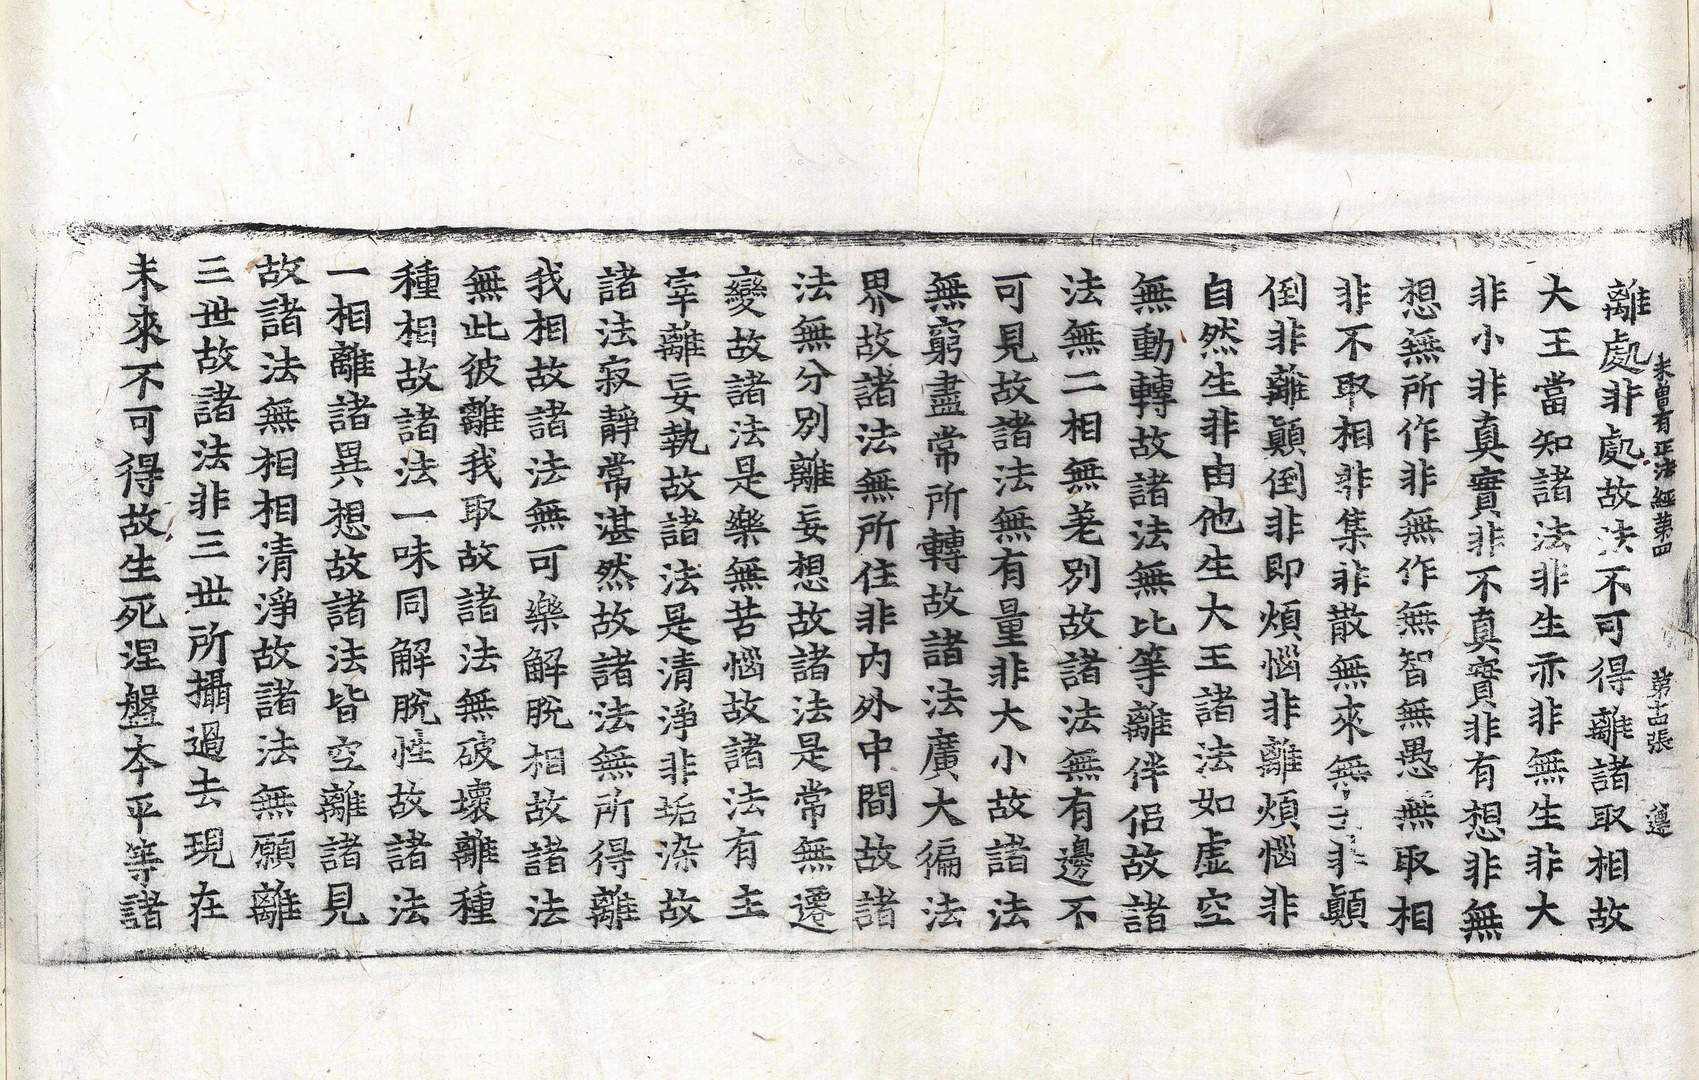 未曾有正法經第四　第十四張　遵
離處非處故法不可得離諸取相故
大王當知諸法非生亦非無生非大
非小非真實非不真實非有想非無
想無所作非無作無智無愚無取相
非不取相非集非散無來無去非顚
倒非離顚倒非即煩惱非離煩惱非
自然生非由他生大王諸法如虛空
無動轉故諸法無比等離伴侶故諸
法無二相無差別故諸法無有邊不
可見故諸法無有量非大小故諸法
無窮盡常所轉故諸法廣大徧法
界故諸法無所住非內外中間故諸
法無分別離妄想故諸法是常無遷
變故諸法是樂無苦惱故諸法有主
宰離妄執故諸法是清淨非垢染故
諸法寂靜常湛然故諸法無所得離
我相故諸法無可樂解脫相故諸法
無此彼離我取故諸法無破壞離種
種相故諸法一味同解脫性故諸法
一相離諸異想故諸法皆空離諸見
故諸法無相相清淨故諸法無願離
三世故諸法非三世所攝過去現在
未來不可得故生死涅盤本平等諸